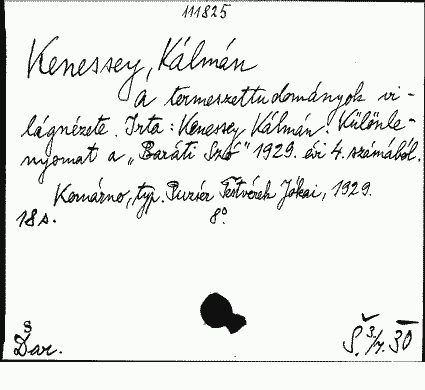 111825
Kenessey, Kálmán
A termeszettudományok vi-
lágnézete. Irta: Kenessey Kálmán. Különle-
nyomat a „Baráti Szó" 1929. évi 4. számából.
Komárno, typ. Puzsér Testvérek Jókai, 1929.
18 s. 8°
S
Dar.